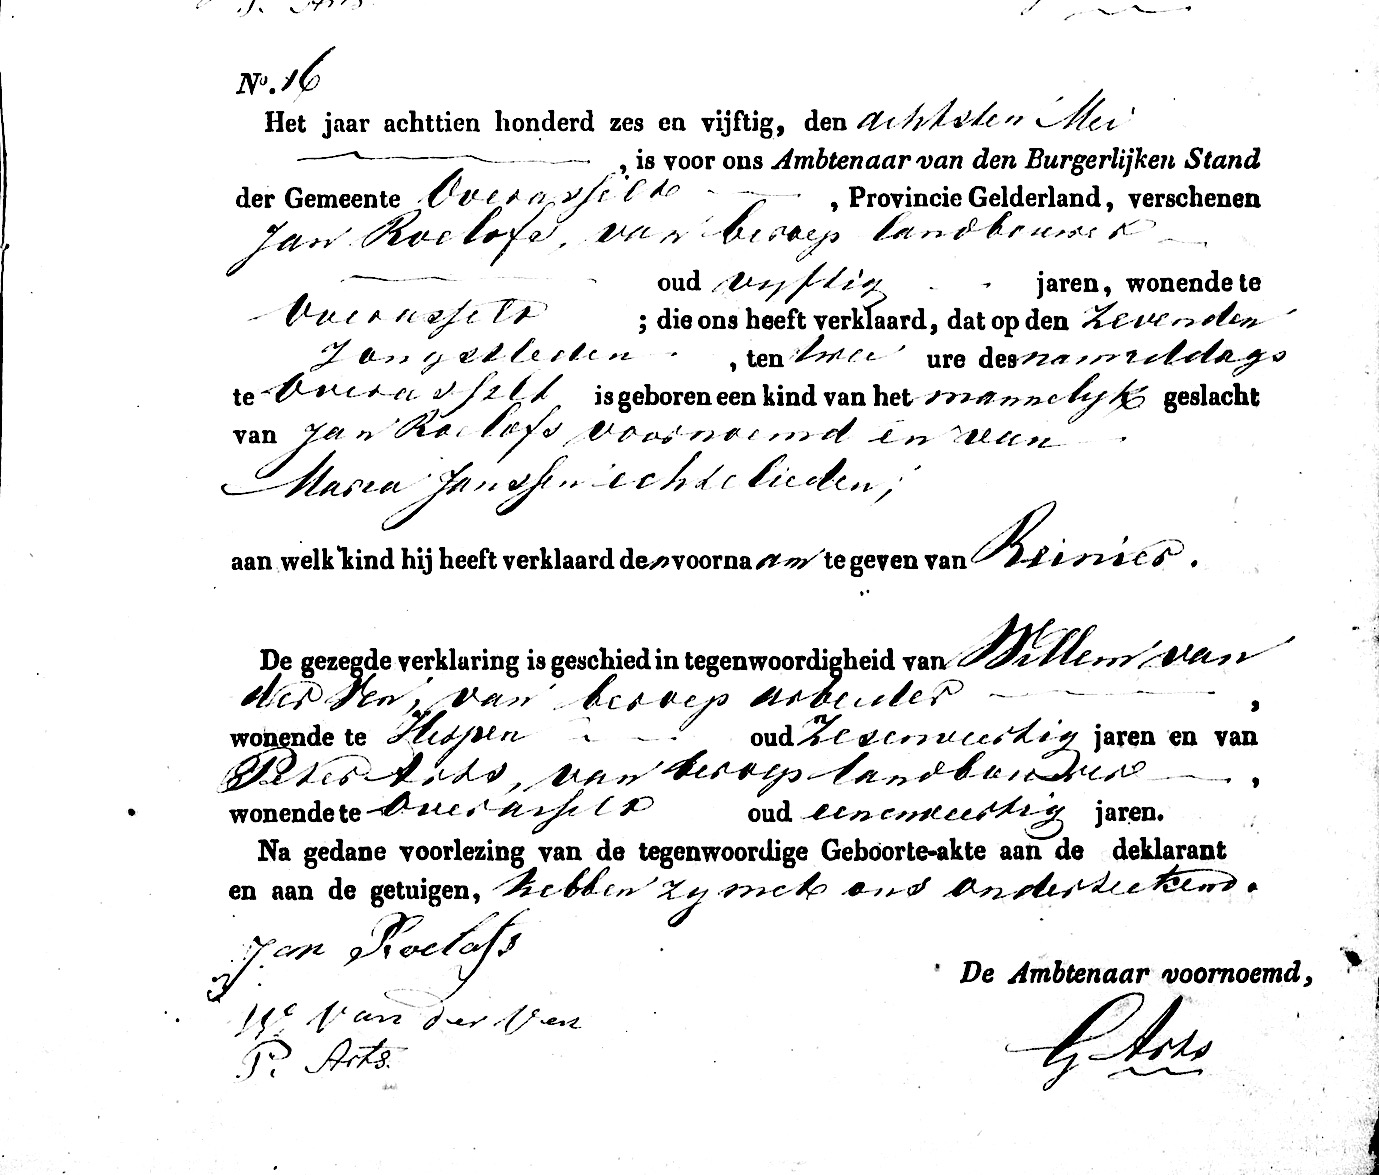 No. 16
Het jaar achttien honderd zes en vijftig, den achtsten Mei
, is voor ons Ambtenaar van den Burgerlijken Stand
der Gemeente Overasselt , Provincie Gelderland, verschenen
Jan Roelofs, van beroep landbouwer
oud vyftig jaren, wonende te
Overasselt ; die ons heeft verklaard, dat op den zevenden
Jongstleden , ten twee ure des namiddags
te Overasselt is geboren een kind van het mannelyk geslacht
van Jan Roelofs voornoemd en van
Maria Janssen echtelieden;
aan welk kind hij heeft verklaard den voornaam te geven van Reinier.
De gezegde verklaring is geschied in tegenwoordigheid van Willem van
der Ven, van beroep arbeider ,
wonende te Herpen oud Zesenveertig jaren en van
Peter Arts, van beroep landbouwer ,
wonende te Overasselt oud eenenveertig jaren.
Na gedane voorlezing van de tegenwoordige Geboorte-akte aan de deklarant
en aan de getuigen, hebben zy met ons onderteekend.
Jan Roelofs
De Ambtenaar voornoemd,
Wm van der Ven
G Arts
P. Arts.